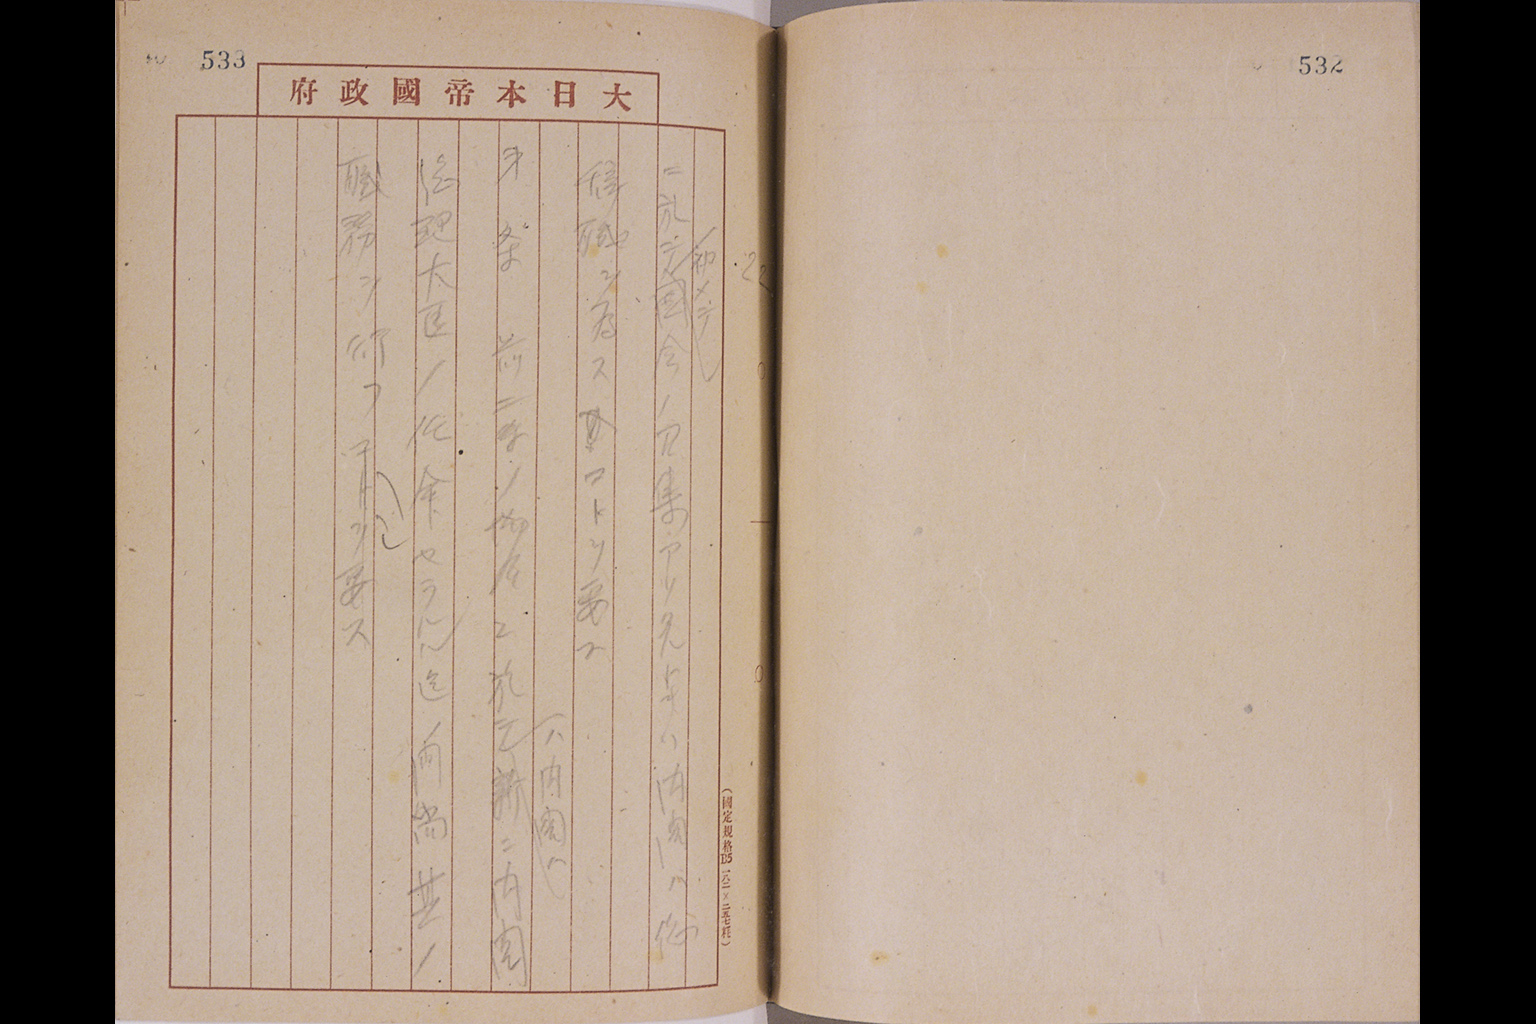 532
533
大日本帝國政府
初メテ
ニ於テ國会ノ召集アリタルトキハ内閣ハ総
辞職ヲ為スコトヲ要ス
第 条 前二条ノ場合ニ於テ新ニ内閣
ハ内閣ハ
総理大臣ノ任命セラルル迄ノ間尚其ノ
職務ヲ行フコトヲ要ス
(國定規格B5 一八二×二五七粍)
22